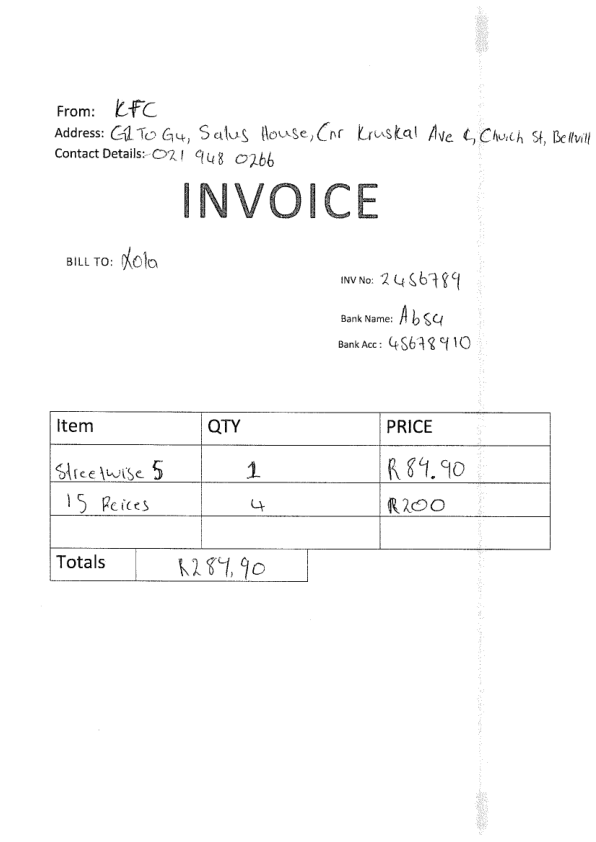 From: KFC
Address: G1 To G4, Salus House, Cnr Kruskal Ave &, Church St, Bellvill
Contact Details: 021 948 0266
INVOICE
BILL TO: Xola
INV No: 2456789
Bank Name: Absa
Bank Acc: 45678910
Item QTY PRICE
Streetwise 5 1 R84.90
15 Peices 4 R200
Totals R284,90